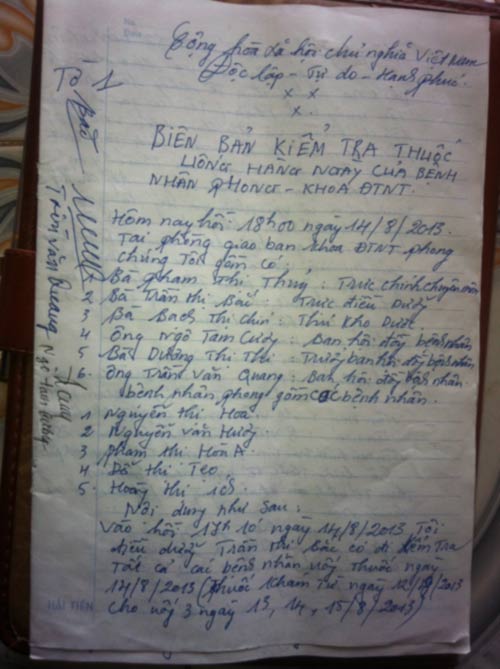 Cộng hòa xã hội chủ nghĩa Việt Nam
Độc lập - Tự do - Hạnh phúc
x x
x
BIÊN BẢN KIỂM TRA THUỐC
UỐNG HÀNG NGÀY CỦA BỆNH
NHÂN PHONG - KHOA ĐTNT.
Hôm nay hồi 18h00 ngày 14/8/2013.
Tại phòng giao ban khoa ĐTNT phong
chúng Tôi gồm có:
1 Bà Phạm Thị Thuý: Trực chính chuyên môn
2 Bà Trần Thị Bắc: Trực điều dưỡng
3 Bà Bạch Thị Chín: Thủ kho Dược
4 Ông Ngô Tam Cường: Ban hội đồng bệnh nhân
5 Bà Dương Thị Thi: Trưởng ban hội đồng bệnh nhân
6. Ông Trần Văn Quang: Ban hội đồng bệnh nhân
bệnh nhân phong gồm các bệnh nhân.
1 Nguyễn Thị Hoa
2 Nguyễn Văn Hướng.
3 Phạm Thị Hòa A
4 Đỗ Thị Tẹo
5.
Nội dung như sau:
Vào hồi 17h10' ngày 14/8/2013 Tôi
điều dưỡng Trần Thị Bắc có đi kiểm Tra
Tất cả các bệnh nhân uống thuốc ngày
14/8/2013 (Thuốc khám Từ ngày 12/8/2013
cho uống 3 ngày 13, 14, 15/8/2013)
HẢI TIẾN
Tổ 1
Bắc
Trần Văn Quang
Ngô Tam Cường